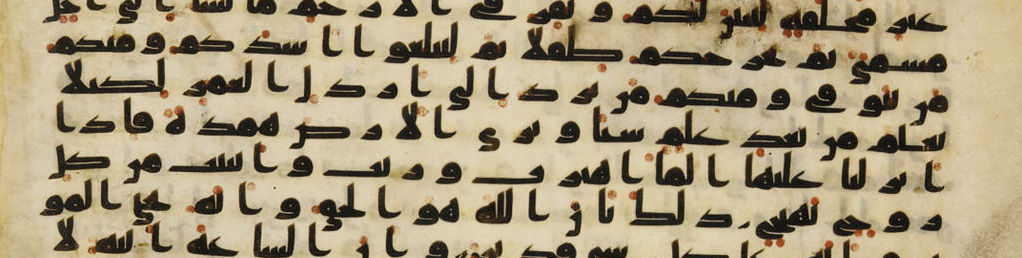 غير مخلقة لنبين لكم و نقر في الارحم ما نشا الى اجل
مسمى ثم نخرجكم طفلا ثم لتبلغوا اشدكم و منكم
من يتوفى و منكم من يرد الى ارذل العمر لكيلا
يعلم من بعد علم شيا و ترى الارض همدة فاذا
انزلنا عليها الما اهتزت و ربت و انبتت من كل
زوج بهيج ذلك بان الله هو الحق و انه يحي المو
تى و انه على كل شى قدير و ان الساعة اتية لا